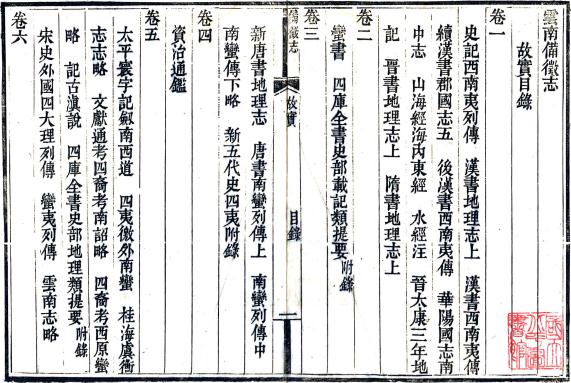 雲南備徵志
故實目錄
卷一
史記西南夷列傳 漢書地理志上 漢書西南夷傳
續漢書郡國志五 後漢書西南夷傳 華陽國志南
中志 山海經海內東經 水經注 晉太康三年地
記 晉書地理志上 隋書地理志上
卷二
蠻書 四庫全書史部載記類提要附錄
卷三
備徵志 故實 目錄 一
新唐書地理志 唐書南蠻列傳上 南蠻列傳中
南蠻傳下略 新五代史四夷附錄
卷四
資治通鑑
卷五
太平寰宇記劍南西道 四夷徼外南蠻 桂海虞衡
志志略 文獻通考四裔考南詔略 四裔考西原蠻
略 記古滇說 四庫全書史部地理類提要附錄
卷六
宋史外國四大理列傳 蠻夷列傳 雲南志略